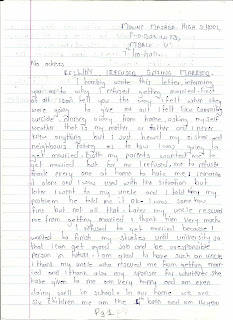 MOUNT MASABA HIGH SCHOOL,
P.O. BOX
MBALE
No adress
RE: WHY I REFUSED GETTING MARRIED.
I humbly wrote this letter, informing
you as to why I refused getting married. first
of all I can tell you the day I fell what they
were going to give me out I fell like commiting
suicide, running away from home, asking my self
weather that is my mother or father and I never
knew anything but I just heared my sister and
neighbours talking as to how I was going to
get married. Both my parents wanted me to
get married but for me I refused, no to refuse
made every one at home to hate me, I remained
alone and I was used with the situation but
later I went to my uncle and I told him my
problem he told me it ok. I was some how
fine but not all that. Later my uncle rescued
me from getting married I thank him very much.
I refused to get married because I
wanted to finish my studies until university so
that I can get a good job and be a responsible
person in future. I am glad to have such an uncle
I thank my uncle who rescued me from getting marr-
ied and I thank also my sponsor for whatever she
have given to me am very happy and am even
doing well in school. In our home we are
six children me am the born and am
Pg 1